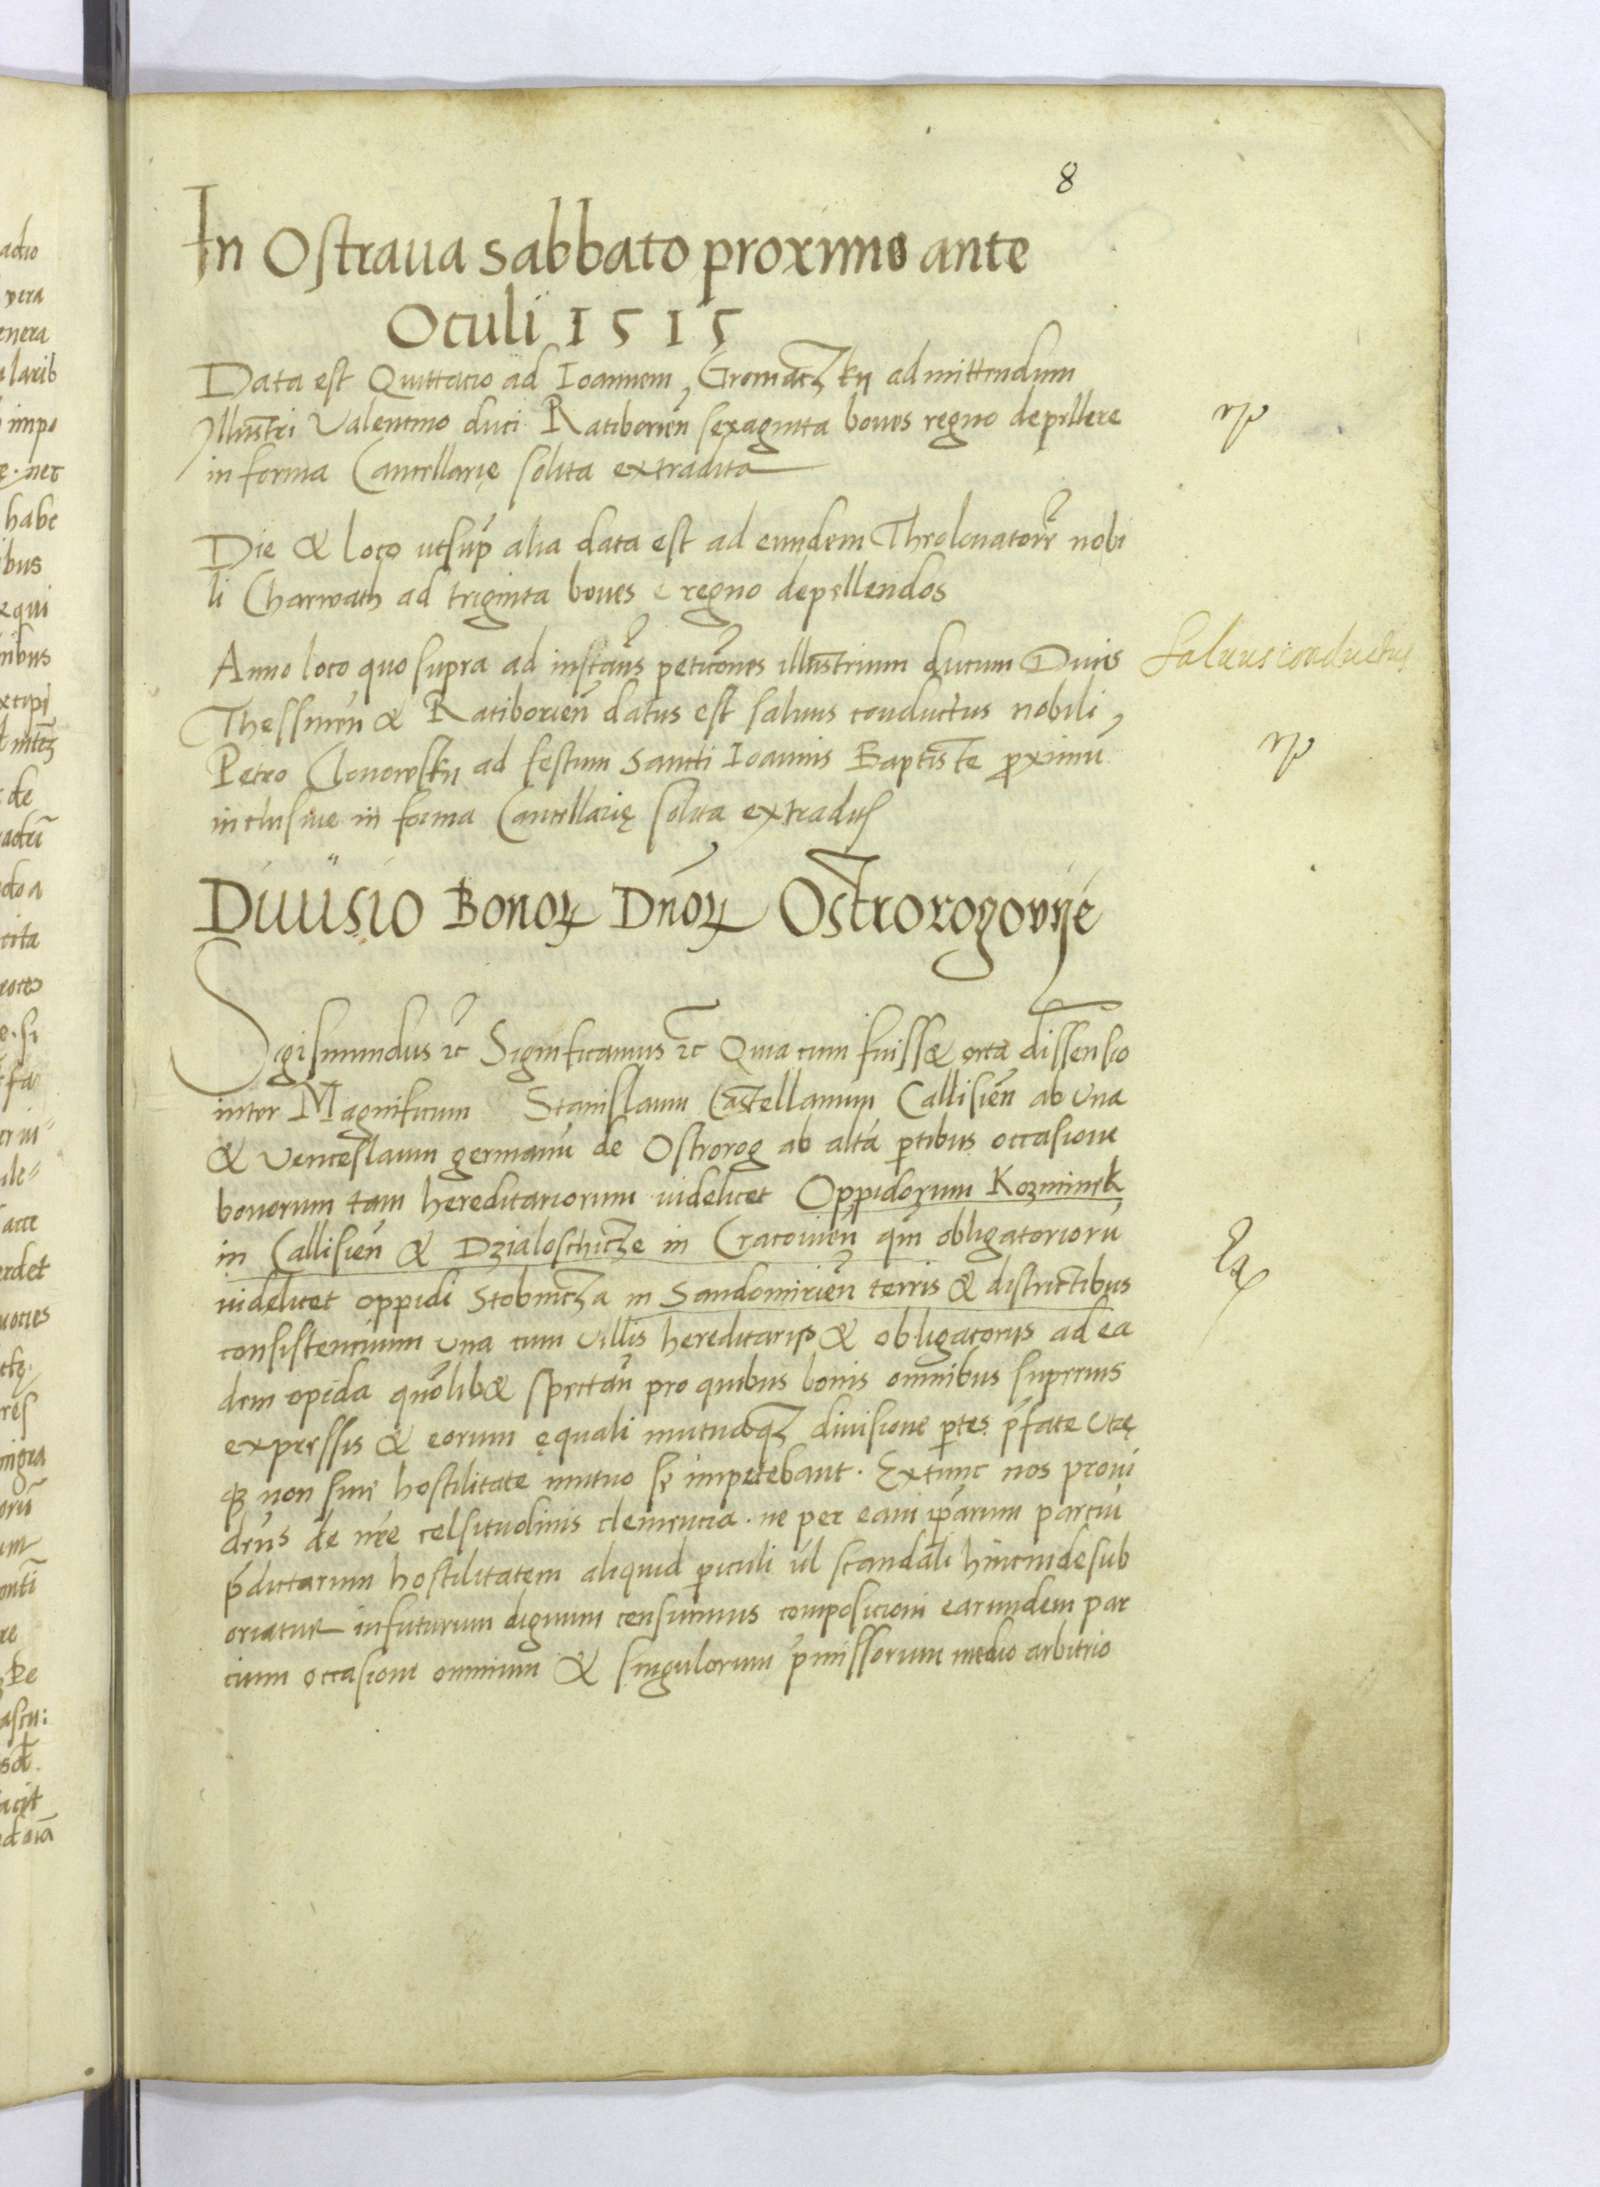 8
In Ostraua sabbato proximo ante
Oculi 1515
Data est Quittacio ad Ioannem Gromaczkij ad mittendum
Jllustri Valentino duci Ratiborien̄ sexaginta boues regno depellere
in forma Cancellarię solita extradita
Die & loco utsup̄ alia data est ad eundem Theolonatorē nobi
li Charwath ad triginta boues e regno depellendos
Anno loco quo supra ad instan̄s petic̄ones illustrium ducum Ducis
Saluus conductus
Thessinen̄ & Ratiborien̄ datus est saluus conductus nobili
Petro Clonowskij ad festum Sancti Ioannis Baptiste proximū
inclusiue in forma Cancellarię solita extradit9
Diuisio Bonoꝝ Dnōꝝ Ostrorogovÿe
Sigismundus ꝛc Significamus ꝛc Quia cum fuisset orta dissensio
inter Magnificum Stanislaum Castellanum Callisien̄ ab una
& Venceslaum germanū de Ostrorog ab altā p̄tibus occasione
bonorum tam hereditariorum uidelicet Oppidorum Kozminek
in Callisien̄ & Dzialoschicze in Cracouien̄ qm̄ obligatoriorū
uidelicet oppidi Stobnicza in Sandomirien̄ terris & districtibus
consistencium una cum villis hereditarijs & obligatorijs ad ea
dem opida quōlibet spectan̄ pro quibus bonis omnibus superius
expressis & eorum ęquali mutuaqꝫ diuisione p̄tes p̄fate utrę
qꝫ non sine hostilitate mutuo se impetebant. Extunc nos proui
den̄s de nr̄e celsitudinis clemencia. ne per eam ip̄arum parciū
p̄dictarum hostilitatem aliquid p̄iculi ul̄ scandali hincindesub
oriatur infuturum dignum censuimus composicioni earundem par
cium occasione omnium & singulorum p̄missorum medio arbitrio